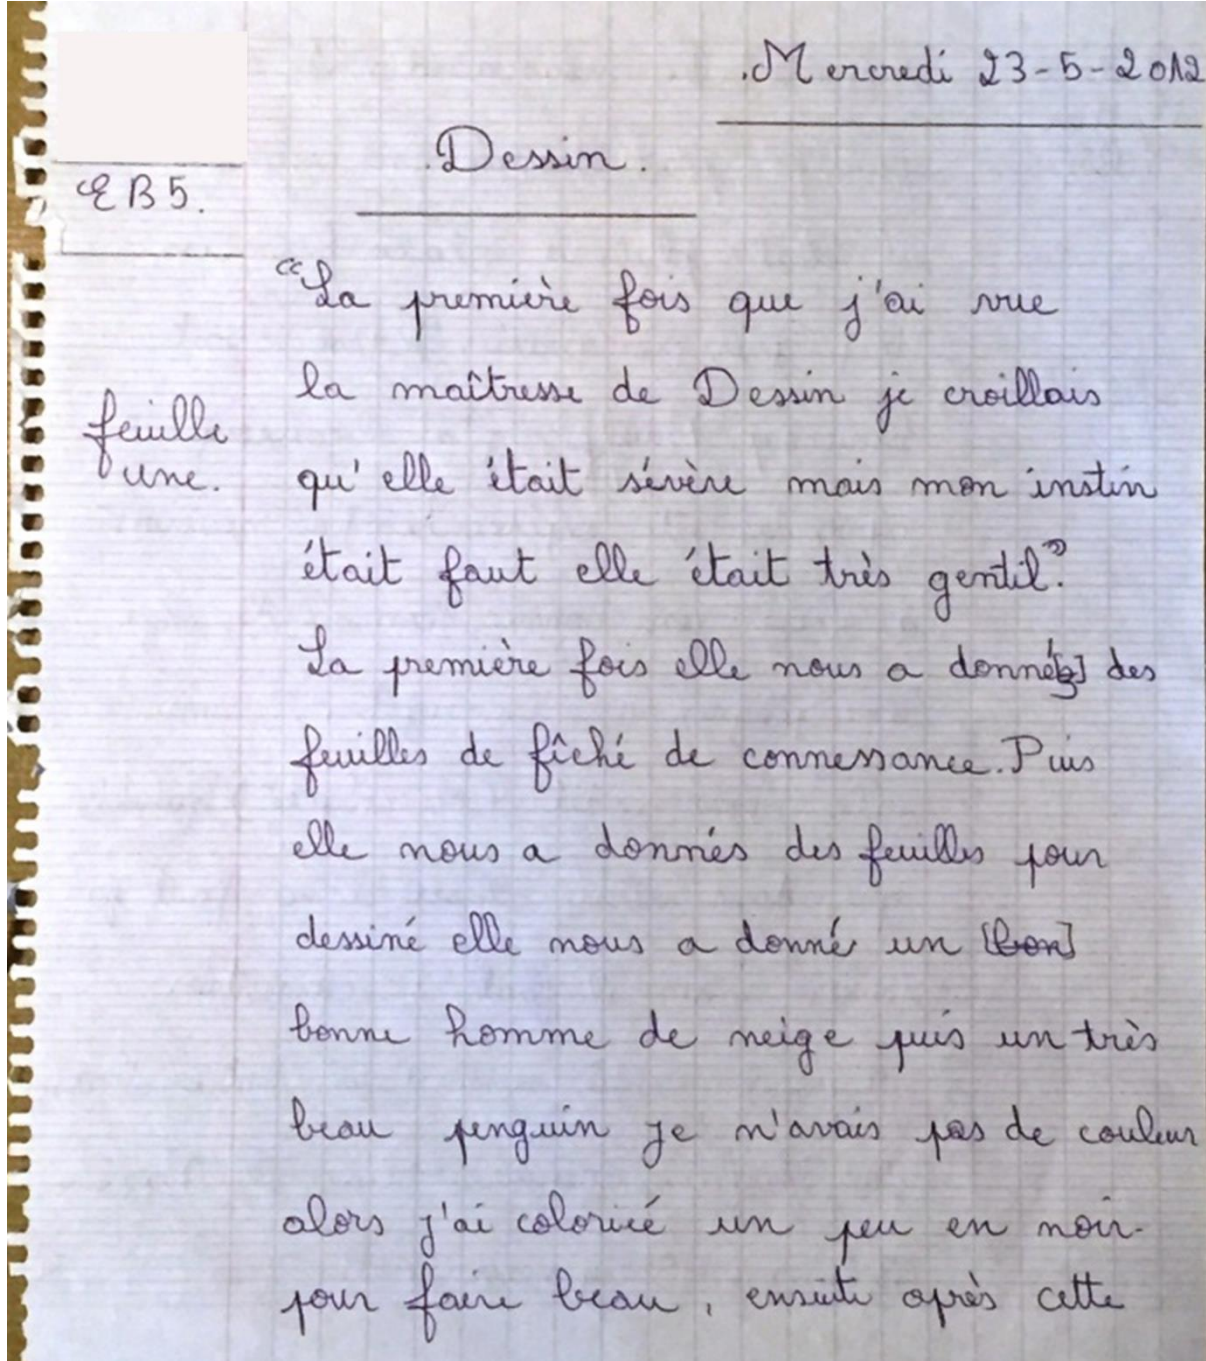 Mercredi 23-5-2012
Dessin.
EB5.
"La première fois que j'ai vue
la maîtresse de Dessin je croillais
feuille
une.
qu'elle était sévère mais mon instin
était faut elle était très gentil".
La première fois elle nous a donné[s] des
feuilles de fîché de connessance. Puis
elle nous a donnés des feuilles pour
dessiné elle nous a donné un [bon]
bonne homme de neige puis un très
beau penguin je n'avais pas de couleur
alors j'ai coloricé un peu en noir
pour faire beau, ensuite après cette